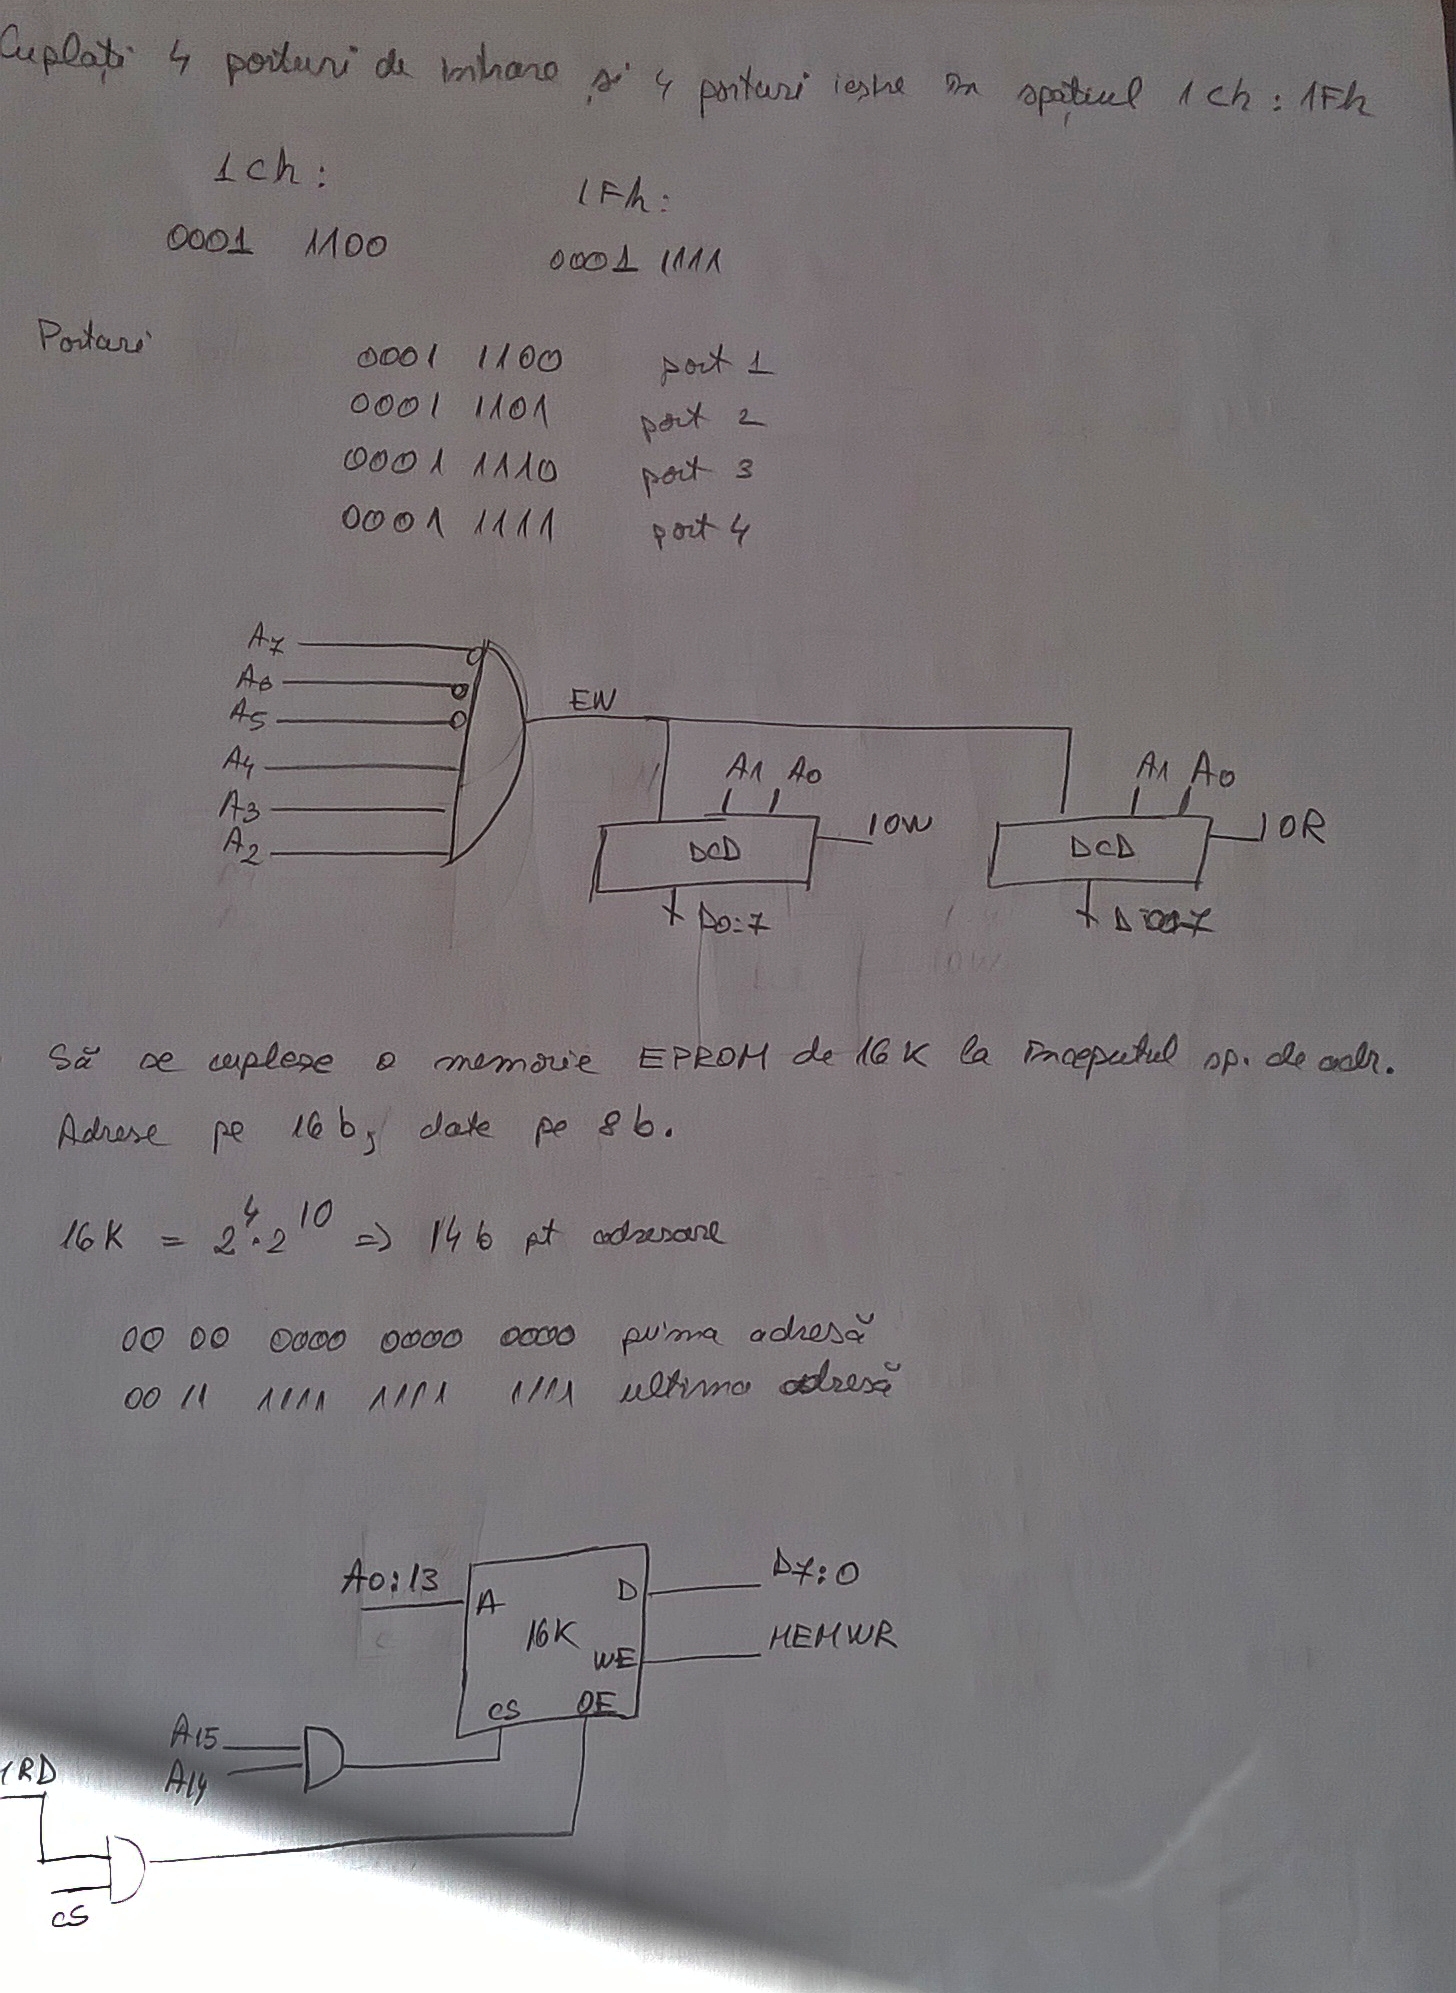 Cuplați 4 porturi de intrare și 4 porturi ieșire în spațiul 1Ch : 1Fh
1Ch : 1Fh :
0001 1100 0001 1111
Porturi
0001 1100 port 1
0001 1101 port 2
0001 1110 port 3
0001 1111 port 4
A7
A6
A5
A4
A3
A2
EN
A1 A0
DCD
IOW
D0:7
A1 A0
DCD
IOR
Să se cupleze o memorie EPROM de 16K la începutul sp. de adr.
Adrese pe 16 b, date pe 8 b.
16K = 2^4 . 2^10 => 14 b pt adresare
00 00 0000 0000 0000 prima adresă
00 11 1111 1111 1111 ultima adresă
A0:13
A D
16K
WE
CS OE
D7:0
MEMWR
A15
A14
RD
CS